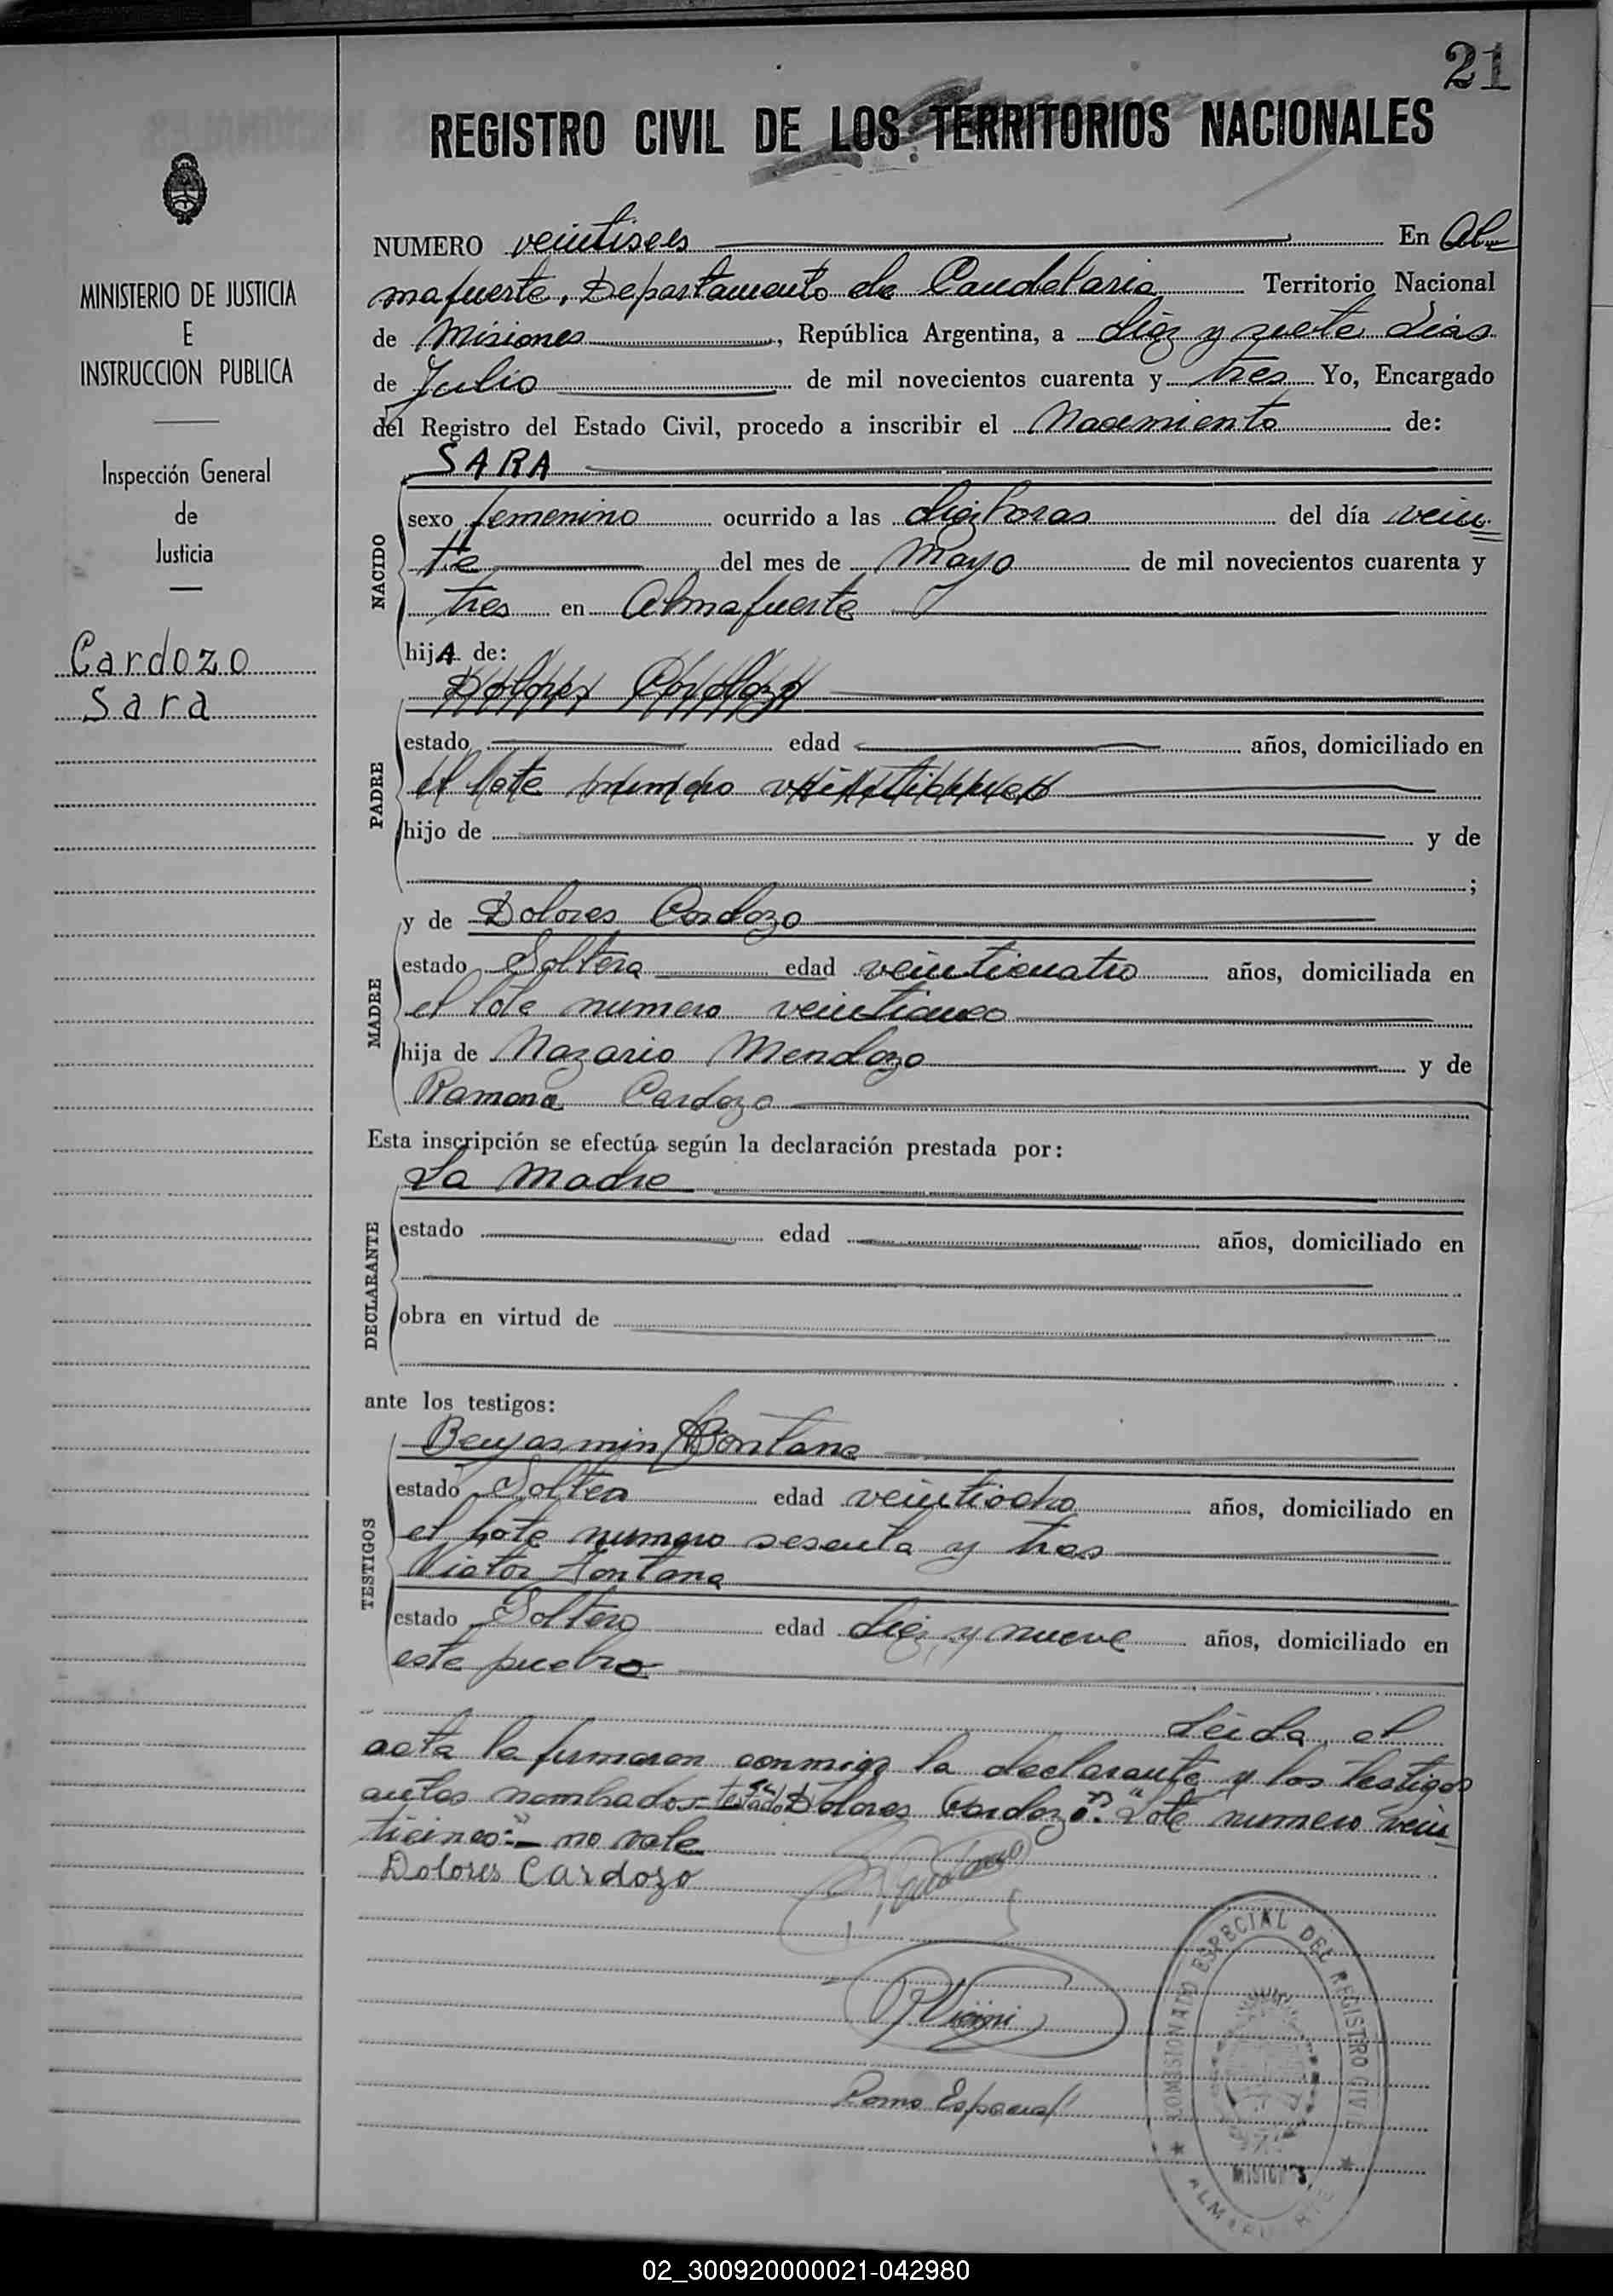 21
REGISTRO CIVIL DE LOS TERRITORIOS NACIONALES
MINISTERIO DE JUSTICIA
E
INSTRUCCION PUBLICA
Inspección General
de
Justicia
Cardozo
Sara
NUMERO veintiseis En Al
mafuerte, Departamento de Candelaria Territorio Nacional
de Misiones, República Argentina, a diez y siete dias
de Julio de mil novecientos cuarenta y tres Yo, Encargado
del Registro del Estado Civil, procedo a inscribir el Nacimiento de:
SARA
NACIDO
sexo femenino ocurrido a las diez horas del día vein
te del mes de Mayo de mil novecientos cuarenta y
tres en Almafuerte
hijA de:
PADRE
Dolores Cardozo
estado edad años, domiciliado en
el lote numero veinticinco
hijo de y de
;
MADRE
y de Dolores Cardozo
estado Soltera edad veinticuatro años, domiciliada en
el lote numero veinticinco
hija de Nazario Mendozo y de
Ramona Cardozo
Esta inscripción se efectúa según la declaración prestada por:
DECLARANTE
La madre
estado edad años, domiciliado en
obra en virtud de
ante los testigos:
TESTIGOS
Benjasmin Fontana
estado Soltero edad veintiocho años, domiciliado en
el lote numero sesenta y tres
Victor Fontana
estado Soltero edad diez y nueve años, domiciliado en
este pueblo
Leida el
acta la firmaron conmigo la declarante y los testigos
antes nombrados testado "Dolores Cardozo". "Lote numero vein
ticinco":- no vale
Dolores Cardozo
COMISIONADO ESPECIAL DEL REGISTRO CIVIL
MISIONES
ALMAFUERTE
02_300920000021-042980